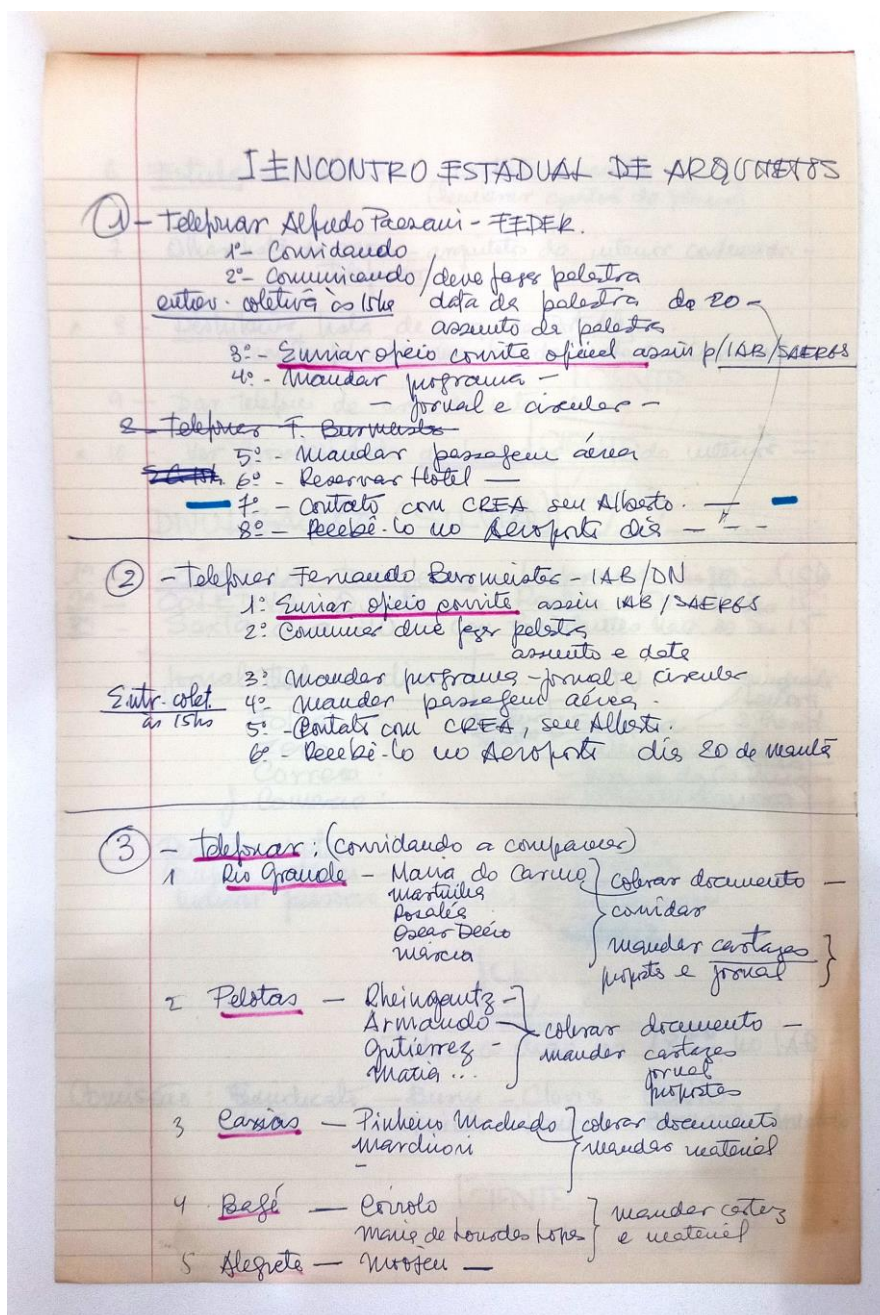 I ENCONTRO ESTADUAL DE ARQUITETOS
1 - Telefonar Alfredo Paesani - FEDER.
1º - Convidando
2º - Comunicando / deve fazer palestra
entrev. coletiva às 15hs data da palestra dia 20 -
assunto da palestra
3º - Enviar ofício convite oficial assin p/ IAB/SAERGS
4º - Mandar programa -
- jornal e circular -
2 - Telefonar F. Burmeister
5º - Mandar passagem aérea
6º - Reservar Hotel —
7º - Contato com CREA seu Alberto. —
8º - Recebê-lo no Aeroporto dia — " — -
2 - Telefonar Fernando Burmeister - IAB/DN
1º Enviar ofício convite assin IAB/SAERGS
2º Comunicar deve fazer palestra
assunto e data
3º Mandar programa - jornal e circular
Entr. colet. 4º - Mandar passagem aérea.
às 15hs 5º - Contato com CREA, seu Alberto.
6º - Recebê-lo no Aeroporto dia 20 de manhã
3 - Telefonar: (convidando a comparecer)
1 Rio Grande - Maria do Carmo cobrar documento —
Martinha convidar
Rosaléa
Oscar Décio mandar cartazes
Márcia propostas e jornal
2 Pelotas — Rheingantz -
Armando - cobrar documento —
Gutiérrez - mandar cartazes
Maria ... jornal
propostas
3 Caxias — Pinheiro Machado cobrar documento
mandar material
-
4 Bagé — mandar cartaz
Maria de Lourdes Lopes e material
5 Alegrete — Moojen —